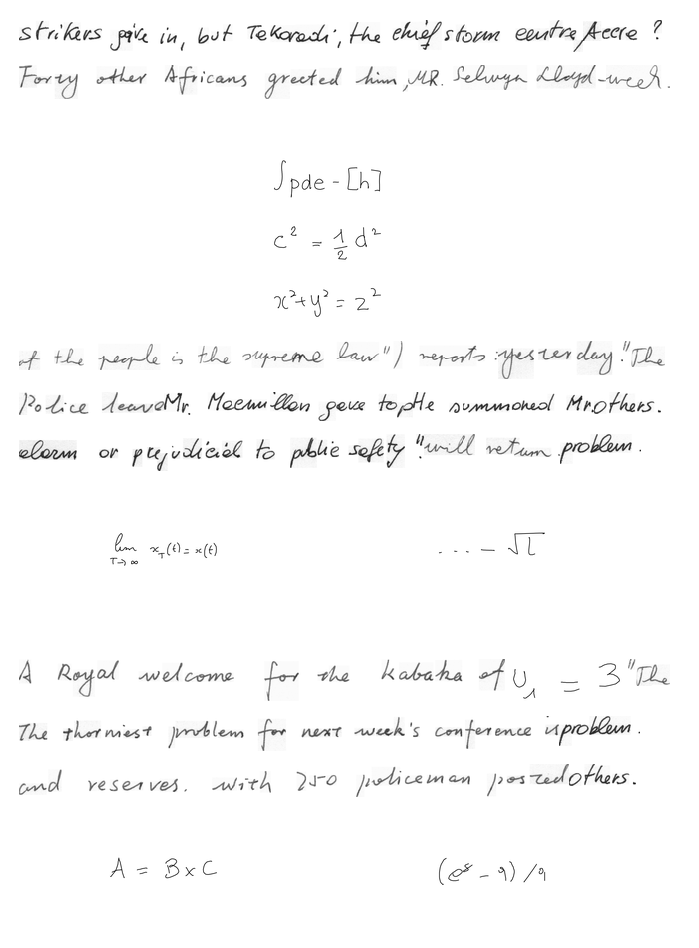 strikers give in, but Tekoradi, the chief storm centre Accre?
Forty other Africans greeted him, MR. Selwyn Lloyd-week.
∫pde - [h]
c² = 1/2 d²
x² + y² = z²
of the people is the supreme law") reports :yesterday."The
Police leave Mr. Macmillan gave to the summoned Mr others.
alarm or prejudicial to public safety "will return problem.
lim T→∞ x_T(t) = x(t)
... - √L
A Royal welcome for the Kabaka of U₁ = 3 "The
The thorniest problem for next week's conference is problem.
and reserves. with 250 policeman posted others.
A = B x C
(e⁸ - 9) / 9